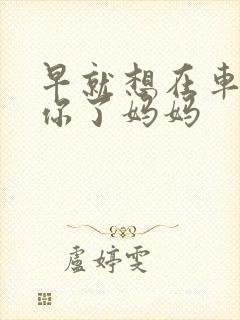 早就想在車
你了妈妈
盧婷雯